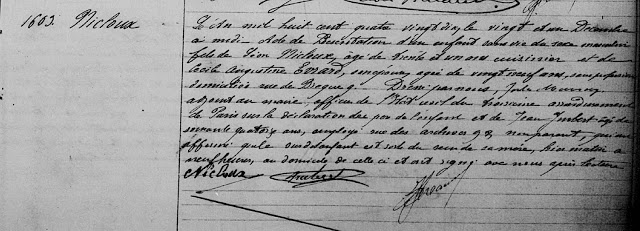 1603. Nicloux
L'An mil huit cent quatre vingt dix, le vingt et un Décembre
à midi. Acte de Présentation d'un enfant sans vie du sexe masculin
fils de Léon Nicloux, âgé de trente et un ans cuisinier et de
Cécile Augustine Evrard, son épouse, agée de vingt neuf ans, sans profession
domiciliés rue de Bragne 9. Dressé par nous, Jules
adjoint au maire, officier de l'Etat civil du troisième arrondissement
de Paris sur la déclaration du père de l'enfant et de Jean Imbert âgé de
soixante quatorze ans, employé rue des archives 98 non parent, qui ont
affirmé que le susdit enfant est sorti du sein de sa mère, hier matin à
neuf heures, au domicile de celle ci et ont signé avec nous après lecture
Nicloux